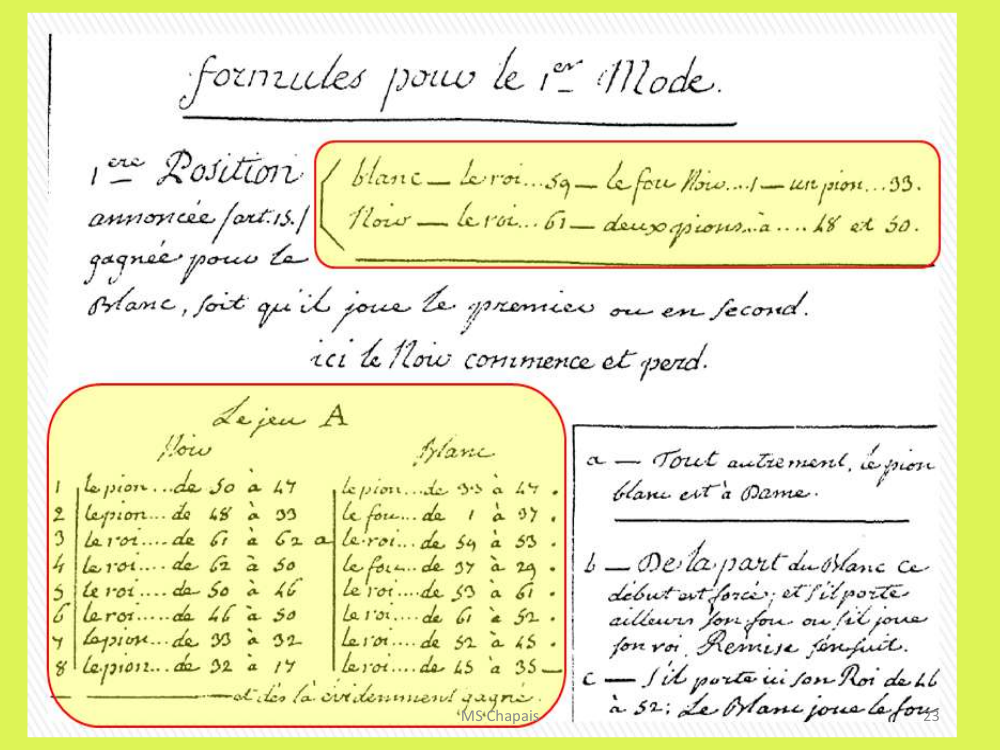 formules pour le 1er Mode.
1ere Position
annoncée /art.15./
gagnée pour le
blanc — le roi...59 — le fou Noir...1 — un pion...33.
Noir — le roi...61 — deux pions..à....48 et 50.
Blanc, soit qu'il joue le premier ou en second.
ici le Noir commence et perd.
Le jeu A
Noir Blanc
1 le pion...de 50 à 47 le pion...de 33 à 47.
2 le pion...de 48 à 33 le fou...de 1 à 37.
3 le roi....de 61 à 62 a le roi...de 59 à 53.
4 le roi....de 62 à 50 le fou...de 37 à 29.
5 le roi....de 50 à 46 le roi...de 53 à 61.
6 le roi....de 46 à 50 le roi...de 61 à 52.
7 le pion...de 33 à 32 le roi...de 52 à 45.
8 le pion...de 32 à 17 le roi...de 45 à 35 —
— et dès là évidemment gagné.
a — Tout autrement, le pion
blanc est à Dame.
b — De la part du Blanc ce
début est forcé; et s'il porte
ailleurs son fou ou s'il joue
son roi, Remise s'ensuit.
c — s'il porte ici son Roi de 46
à 52: Le Blanc joue le fou
MS Chapais
23